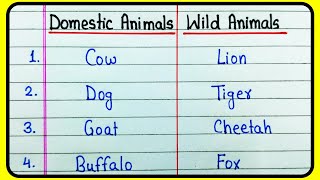 Domestic Animals Wild Animals
1. Cow Lion
2. Dog Tiger
3. Goat Cheetah
4. Buffalo Fox